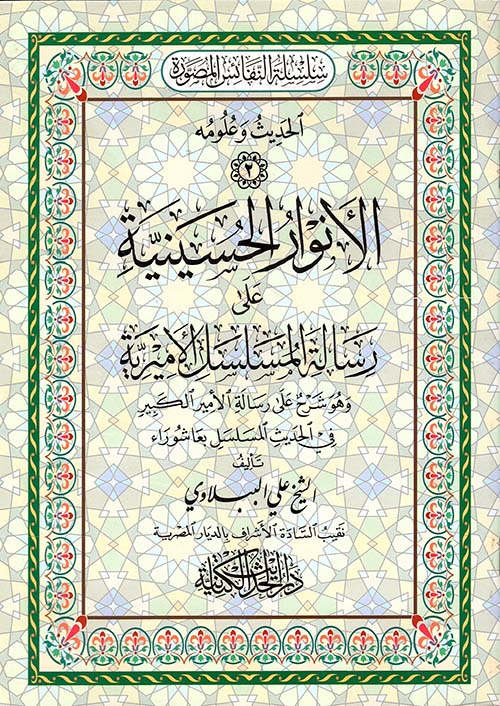 سِلْسِلَةُ النَّفَائِسِ المُصَوَّرَةِ
الحَدِيثُ وَعُلُومُه
٢
الأَنْوَارُ الحُسَيْنِيَّةِ
عَلَى
رِسَالَةِ المُسَلْسَلِ الأَمِيرِيَّةِ
وَهُوَ شَرْحٌ عَلَى رِسَالَةِ الأَمِيرِ الكَبِيرِ
فِي الحَدِيثِ المُسَلْسَلِ بِعَاشُورَاء
تَأْلِيفُ
الشيخ علي الببلاوي
نَقِيبُ السَّادَةِ الأَشْرَافِ بِالدِّيَارِ المِصْرِيَّةِ